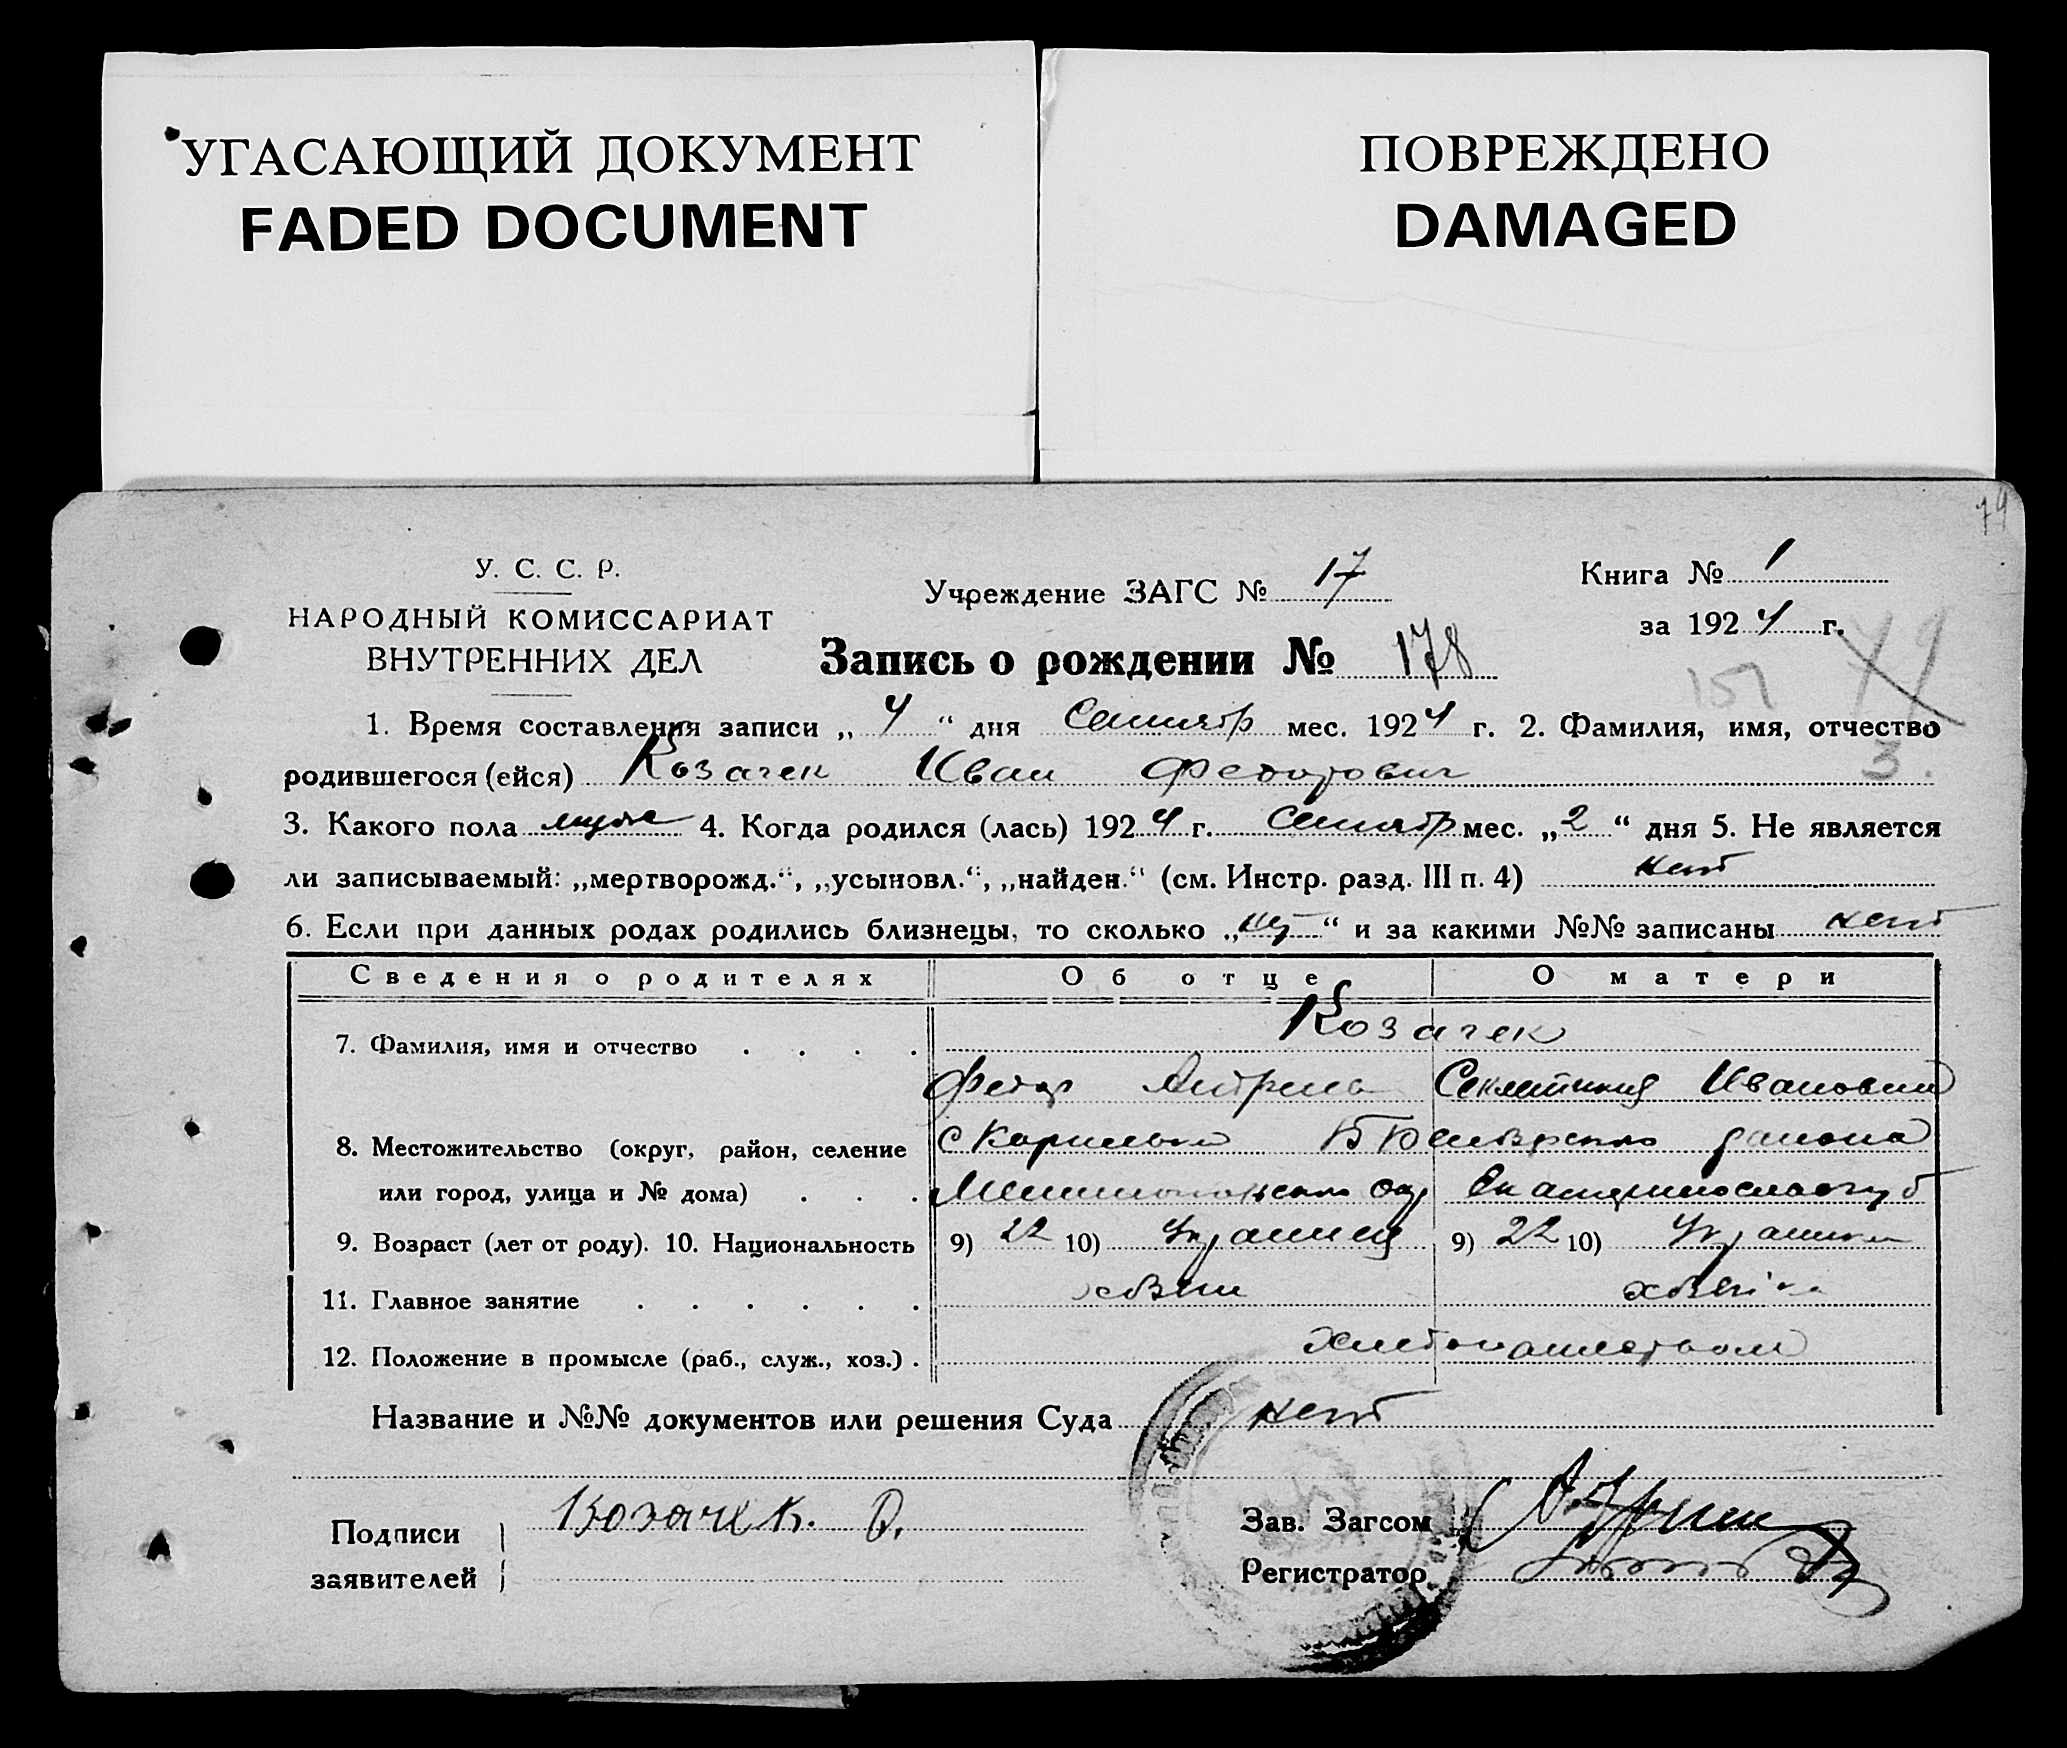 УГАСАЮЩИЙ ДОКУМЕНТ
FADED DOCUMENT
ПОВРЕЖДЕНО
DAMAGED
79
У. С. С. Р.
НАРОДНЫЙ КОМИССАРИАТ
ВНУТРЕННИХ ДЕЛ
Учреждение ЗАГС № 17
Книга № 1
за 1924 г.
Запись о рождении № 178
151 79
1. Время составления записи „4“ дня Сентябр мес. 1924 г. 2. Фамилия, имя, отчество
родившегося (ейся) Козачек Иван Федорович
3.
3. Какого пола муж 4. Когда родился (лась) 1924 г. Сентябр мес. „2“ дня 5. Не является
ли записываемый: „мертворожд.“, „усыновл.“, „найден.“ (см. Инстр. разд. III п. 4) нет
6. Если при данных родах родились близнецы, то сколько „“ и за какими №№ записаны нет
Сведения о родителях Об отце О матери
7. Фамилия, имя и отчество Козачек
Федор Секлетиния Ивановна
8. Местожительство (округ, район, селение с района
или город, улица и № дома) Екатеринославгуб
9. Возраст (лет от роду). 10. Национальность 9) 22 10) Украинец 9) 22 10)
11. Главное занятие
12. Положение в промысле (раб., служ., хоз.)
Название и №№ документов или решения Суда нет
Подписи заявителей Козачек. Ф.
Зав. Загсом
Регистратор